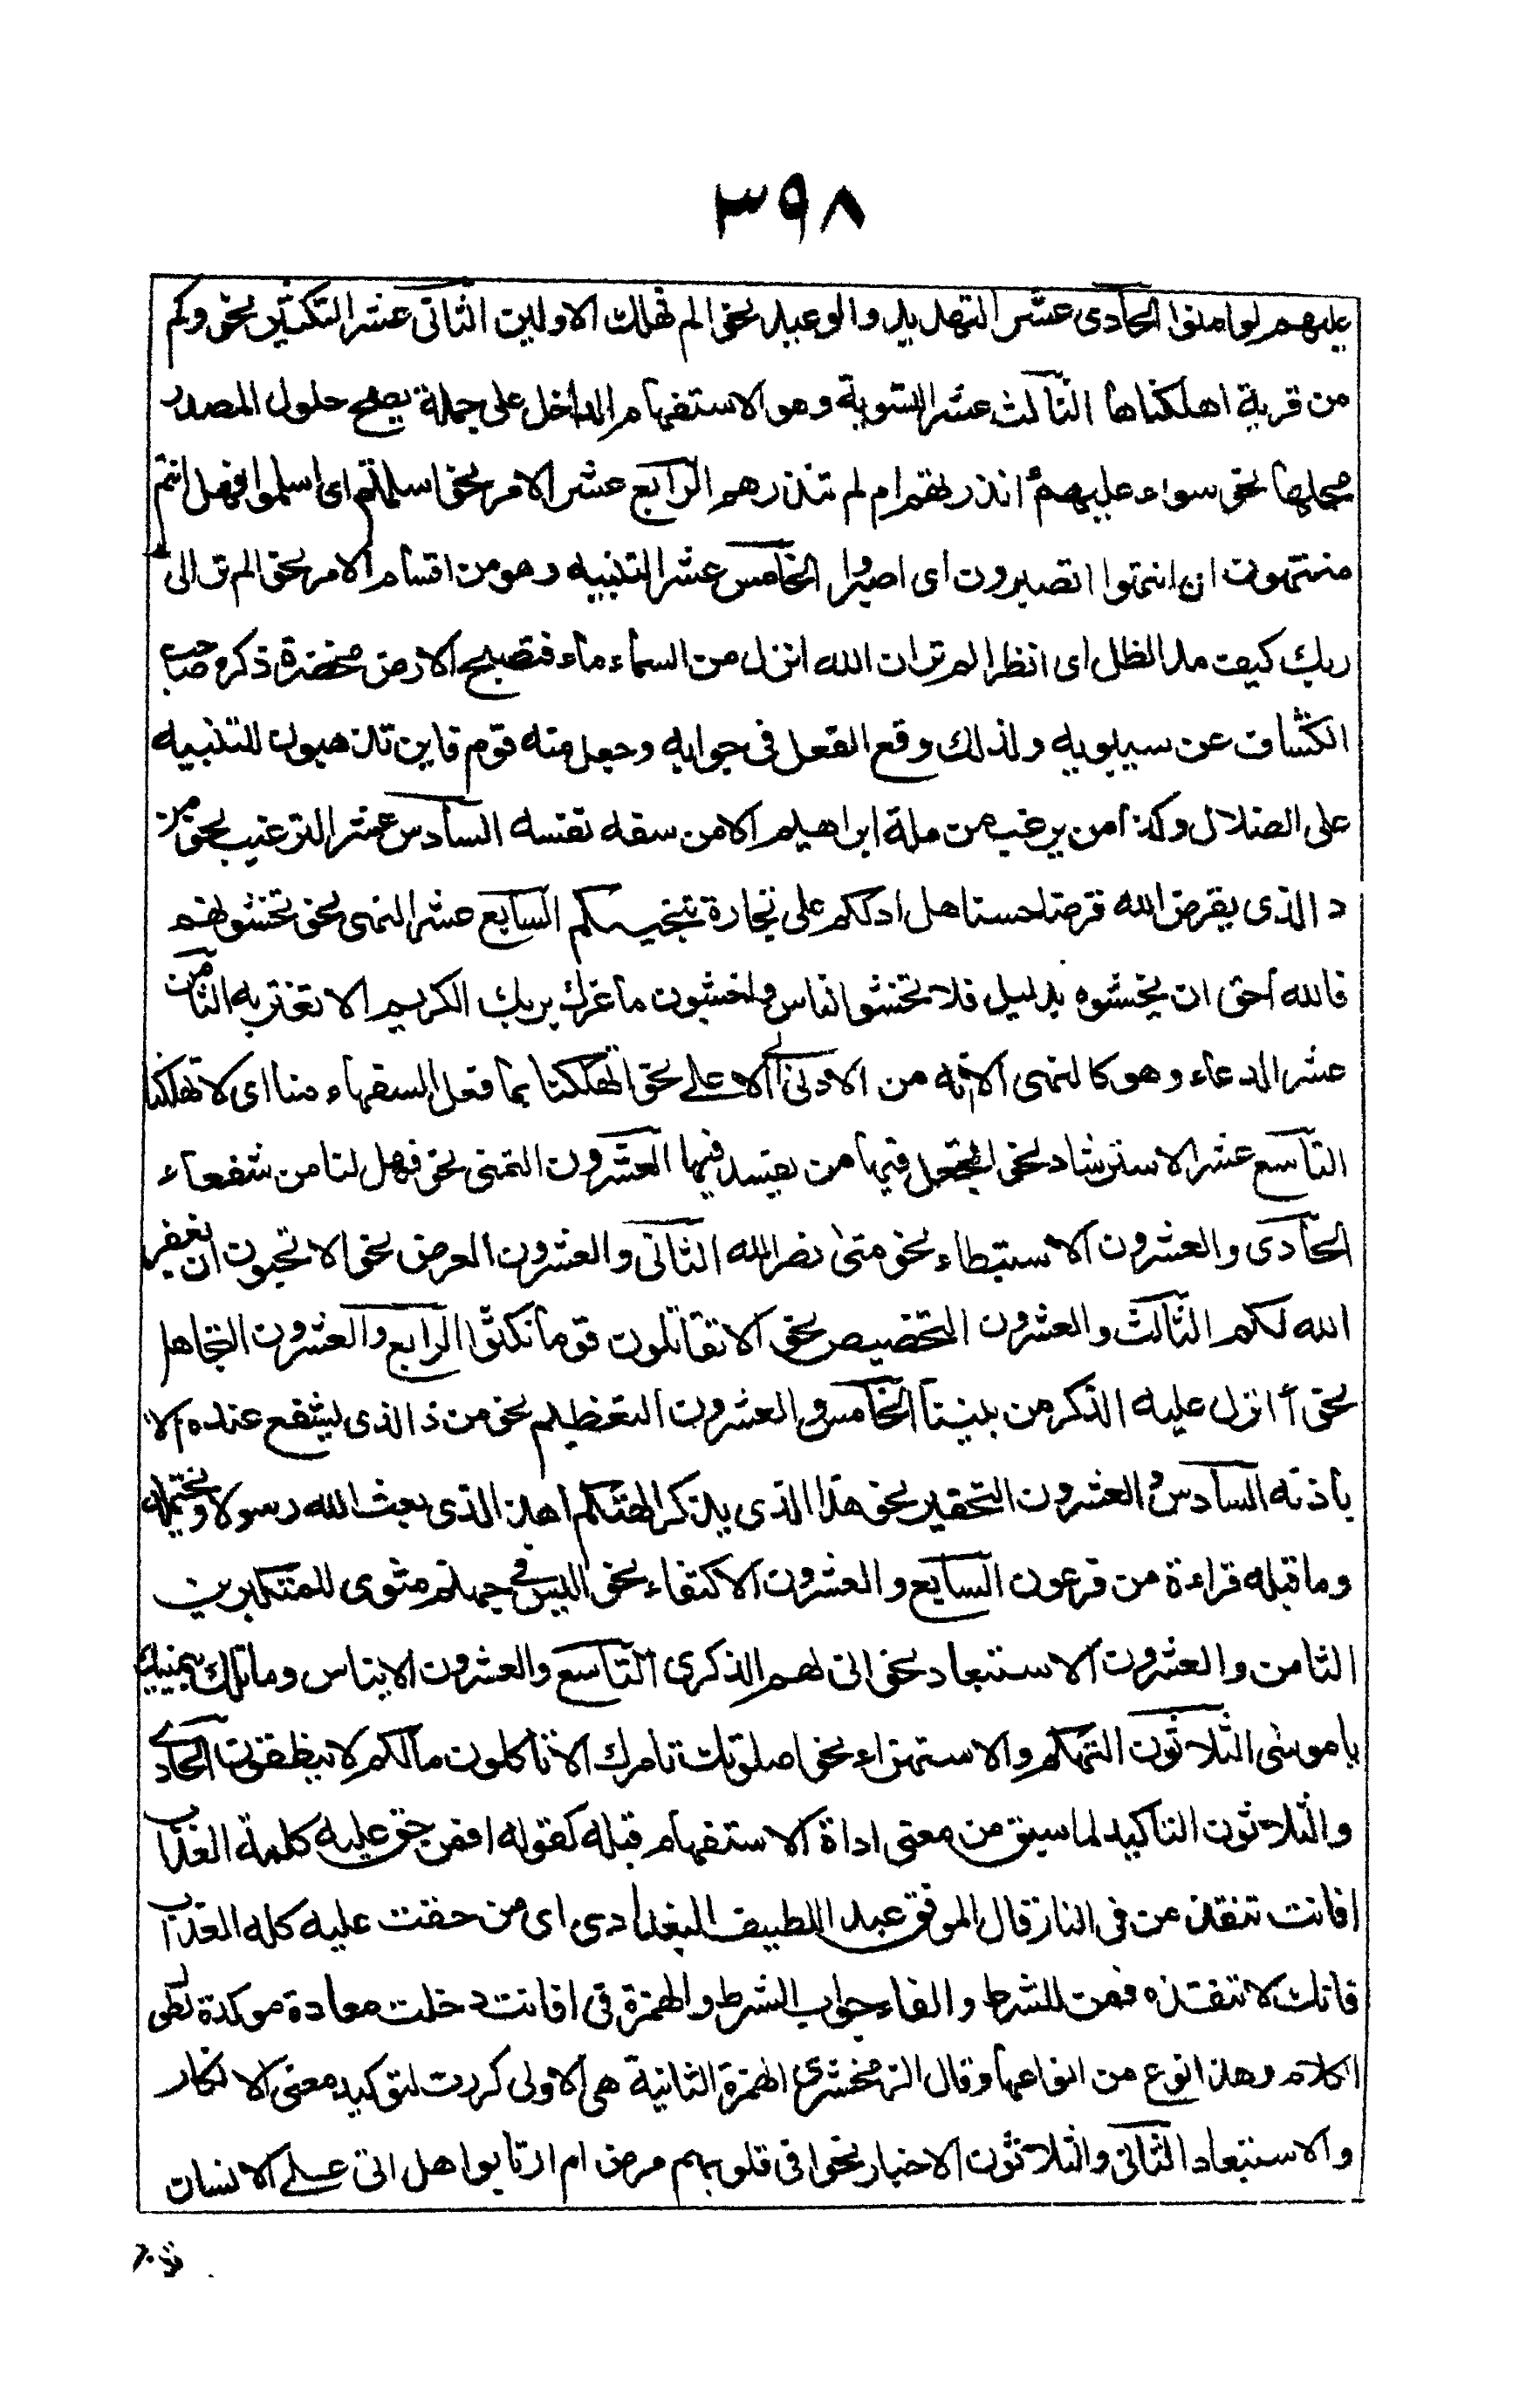 ٣٩٨
عليهم لو امنوا الحادى عشر التهديد والوعيد نحو الم نهلك الاولين الثانى عشر التكثير نحو وكم
من قرية اهلكناها الثالث عشر التسوية وهو الاستفهام الداخل على جملة يصح حلول المصدر
محلها نحو سواء عليهم أانذرتهم ام لم تنذرهم الرابع عشر الامر نحو اسلمتم اى اسلموا فهل انتم
منتهون ان انتهوا اتصبرون اى اصبروا الخامس عشر التنبيه وهو من اقسام الامر نحو الم تر الى
ربك كيف مد الظل اى انظر الم تر ان الله انزل من السماء ماء فتصبح الارض مخضرة ذكره صاحب
الكشاف عن سيبويه ولذلك وقع الفعل فى جوابه وجعل منه قوم فاين تذهبون للتنبيه
على الضلال وكذا من يرغب عن ملة ابراهيم الا من سفه نفسه السادس عشر الترغيب نحو من
ذا الذى يقرض الله قرضا حسنا هل ادلكم على تجارة تنجيكم السابع عشر النهى نحو تخشونهم
فالله أحق ان تخشوه بدليل فلا تخشوا الناس واخشون ما غرك بربك الكريم اى لا تغتر به الثامن
عشر الدعاء وهو كالنهى الا انه من الادنى الى الاعلى نحو اتهلكنا بما فعل السفهاء منا اى لا تهلكنا
التاسع عشر الاسترشاد نحو اتجعل فيها من يفسد فيها العشرون التمنى نحو فهل لنا من شفعاء
الحادى والعشرون الاستبطاء نحو متى نصر الله الثانى والعشرون العرض نحو الا تحبون ان يغفر
الله لكم الثالث والعشرون التحضيض نحو الا تقاتلون قوما نكثوا الرابع والعشرون التجاهل
نحو أانزل عليه الذكر من بيننا الخامس والعشرون التعظيم نحو من ذا الذى يشفع عنده الا
باذنه السادس والعشرون التحقير نحو هذا الذى يذكر الهتكم اهذا الذى بعث الله رسولا ويحتمله
وما قبله قراءة من فرعون السابع والعشرون الاكتفاء نحو اليس فى جهنم مثوى للمتكبرين
الثامن والعشرون الاستبعاد نحو انى لهم الذكرى التاسع والعشرون الايناس وما تلك بيمينك
يا موسى الثلاثون التهكم والاستهزاء نحو اصلوتك تامرك الا تاكلون ما لكم لا تنطقون الحادى
والثلاثون التاكيد لما سبق من معنى اداة الاستفهام قبله كقوله افمن حق عليه كلمة العذاب
افانت تنقذ من فى النار قال الموفق عبد اللطيف البغدادى اى من حقت عليه كلمه العذاب
فانك لا تنقذه فمن للشرط والفاء جواب الشرط والهمزة فى افانت دخلت معادة موكدة لطول
الكلام وهذا نوع من انواعها وقال الزمخشرى الهمزة الثانية هى الاولى كررت لتوكيد معنى الانكار
والاستبعاد الثانى والثلاثون الاخبار نحو افى قلوبهم مرض ام ارتابوا هل اتى على الانسان